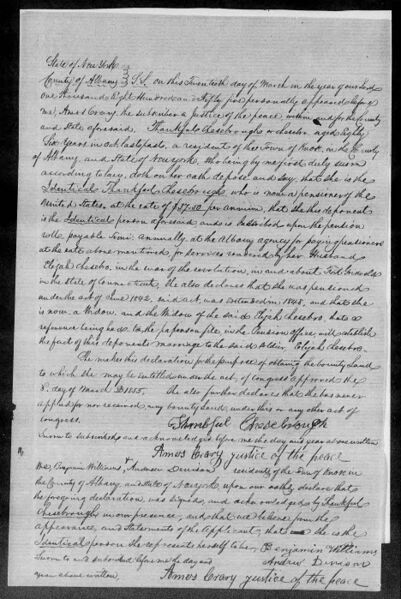 State of New York
County of Albany S.S. on this Twentieth day of March in the year of our Lord
One thousand Eight Hundred and Fifty five personally appeared before
me, Amos Crary the subscriber a justice of the peace, within and for the County
and State aforesaid, Thankful Chesebrough or Chesebro aged Eighty
Six years in last past, a resident of the Town of Knox, in the County
of Albany, and State of New york, who being by me first duly sworn
according to law, doth on her oath depose and say, that she is the
Identical Thankful Chesebrough, who is now a pensioner of the
United States, at the rate of per annum, that she this deponent
is the Identical person aforesaid and is Inscribed upon the pension
roll payable Semi-annually at the Albany agency for paying pensioners
at the rate above mentioned, for services rendered by her Husband
Elijah Chesebro, in the war of the revolution, in and about
in the State of Connecticut, She also declares that she was pensioned
under the act of June said act was Extended in 1848, and that she
is now a Widow, and the Widow of the said Elijah Chesebro, hath a
reference being had to the papers on file, in the Pension office, will establish
the fact of this deponents marriage to the said Soldier Elijah Chesebro.
She makes this declaration for the purpose of obtaining the bounty land
to which she may be entitled under the act, of congress approved the
3. day of March 1855. She also further declares that she has never
applied for nor received any bounty land under this or any other act of
congress.
Thankful Chesebrough
Sworn to subscribed and acknowledged before me the day and year above written
Amos Crary justice of the peace
We, Benjamin Williams, & Andrew Denison residents of the Town of Knox in
the County of Albany, and State of New york, upon our oaths declare that
the foregoing declaration, was signed, and acknowledged by Thankful
Chesebrough in our presence, and that we believe from the
appearance, and Statements of the Applicant, that she is the
Identical person she represents herself to be. Benjamin Williams
Sworn to and subscribed before me the day and Andrew Denison
year above written, Amos Crary justice of the peace